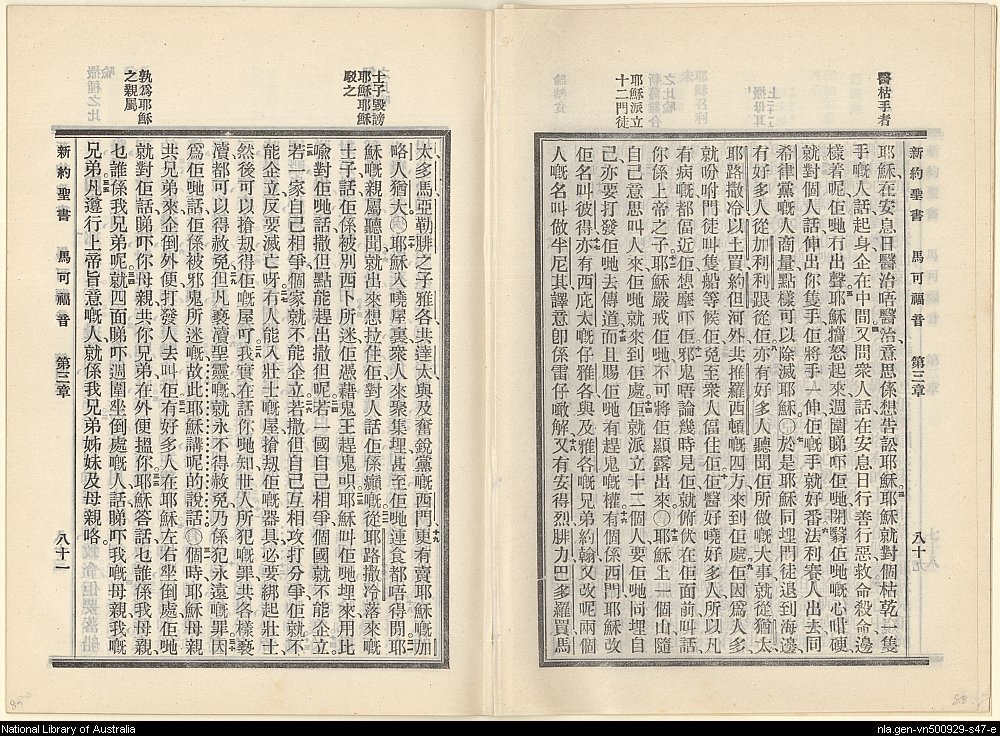 醫枯手者
耶穌派立
十二門徒
新約聖書 馬可福音 第三章
耶穌在安息日醫治唔醫治意思係想告訟耶穌耶穌就對個枯乾一隻
手嘅人話起身企在中間又問衆人話在安息日行善行惡救命殺命邊
樣着呢佢哋冇出聲耶穌㦖怒起來週圍睇吓佢哋閉翳佢哋嘅心咁硬
就對個人話伸出你隻手佢將手一伸佢嘅手就好番法利賽人出去同
希律黨嘅人商量點樣可以除滅耶穌㊥於是耶穌同埋門徒退到海邊
有好多人從加利利跟從佢亦有好多人聽聞佢所做嘅大事就從猶太
耶路撒冷以土買約但河外共推羅西頓嘅四方來到佢處佢因爲人多
就吩咐門徒叫隻船等候佢免至衆人偪住佢佢醫好嘵好多人所以凡
有病嘅都偪近佢想𢱑吓佢邪鬼唔論幾時見佢就俯伏在佢面前叫話
你係上帝之子耶穌嚴戒佢哋不可將佢顯露出來㊥耶穌上一個山隨
自己意思叫人來佢哋就來到佢處佢就派立十二個人要佢哋同埋自
己亦要打發佢哋去傳道而且賜佢哋有趕鬼嘅權有個係西門耶穌改
佢名叫彼得亦有西庇太嘅仔雅各與及雅各嘅兄弟約翰又改呢兩個
人嘅名叫做半尼其譯意卽係雷仔噉解又有安得烈腓力巴多羅買馬
士子毀謗
耶穌耶穌
駁之
孰爲耶穌
之親屬
太多馬亞勒腓之子雅各共達太與及奮銳黨嘅西門更有賣耶穌嘅加
略人猶大㊥耶穌入嘵屋裏衆人來聚集埋甚至佢哋連食都唔得閒耶
穌嘅親屬聽聞就出來想拉住佢對人話佢係癲嘅從耶路撒冷落來嘅
士子話佢係被別西卜所迷佢憑藉鬼王趕鬼唄耶穌叫佢哋埋來用比
喩對佢哋話撒但點能趕出撒但呢若一國自己相爭個國就不能企立
若一家自己相爭個家就不能企立若撒但自己互相攻打分爭佢就不
能企立反要滅亡呀冇人能入壯士嘅屋搶刼佢嘅器具必要綁起壯士
然後可以搶刼得佢嘅屋吖我實在話你哋知世人所犯嘅罪共各樣褻
瀆都可以得赦免但凡褻瀆聖靈嘅就永不得赦免乃係犯永遠嘅罪因
爲佢哋話佢係被邪鬼所迷嘅故此耶穌講呢的說話㊥個時耶穌母親
共兄弟來企倒外便打發人去叫佢有好多人在耶穌左右坐倒處佢哋
就對佢話睇吓你母親共你兄弟在外便搵你耶穌答話乜誰係我母親
乜誰係我兄弟呢就四面睇吓週圍坐倒處嘅人話睇吓我嘅母親我嘅
兄弟凡遵行上帝旨意嘅人就係我兄弟姊妹及母親咯
新約聖書 馬可福音 第三章 八十二
National Library of Australia
nla.gen-vn500929-s47-e